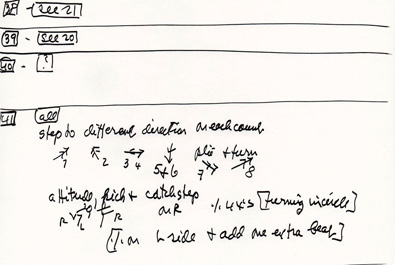 38 - see 21
39 - see 20
40 - ?
41 all
step to different direction on each count
1 2 3 4 5+6 7 8
plié + turn
attitude, + catchstep
R L R on R
[turning in circle]
on L side + add one extra beat]